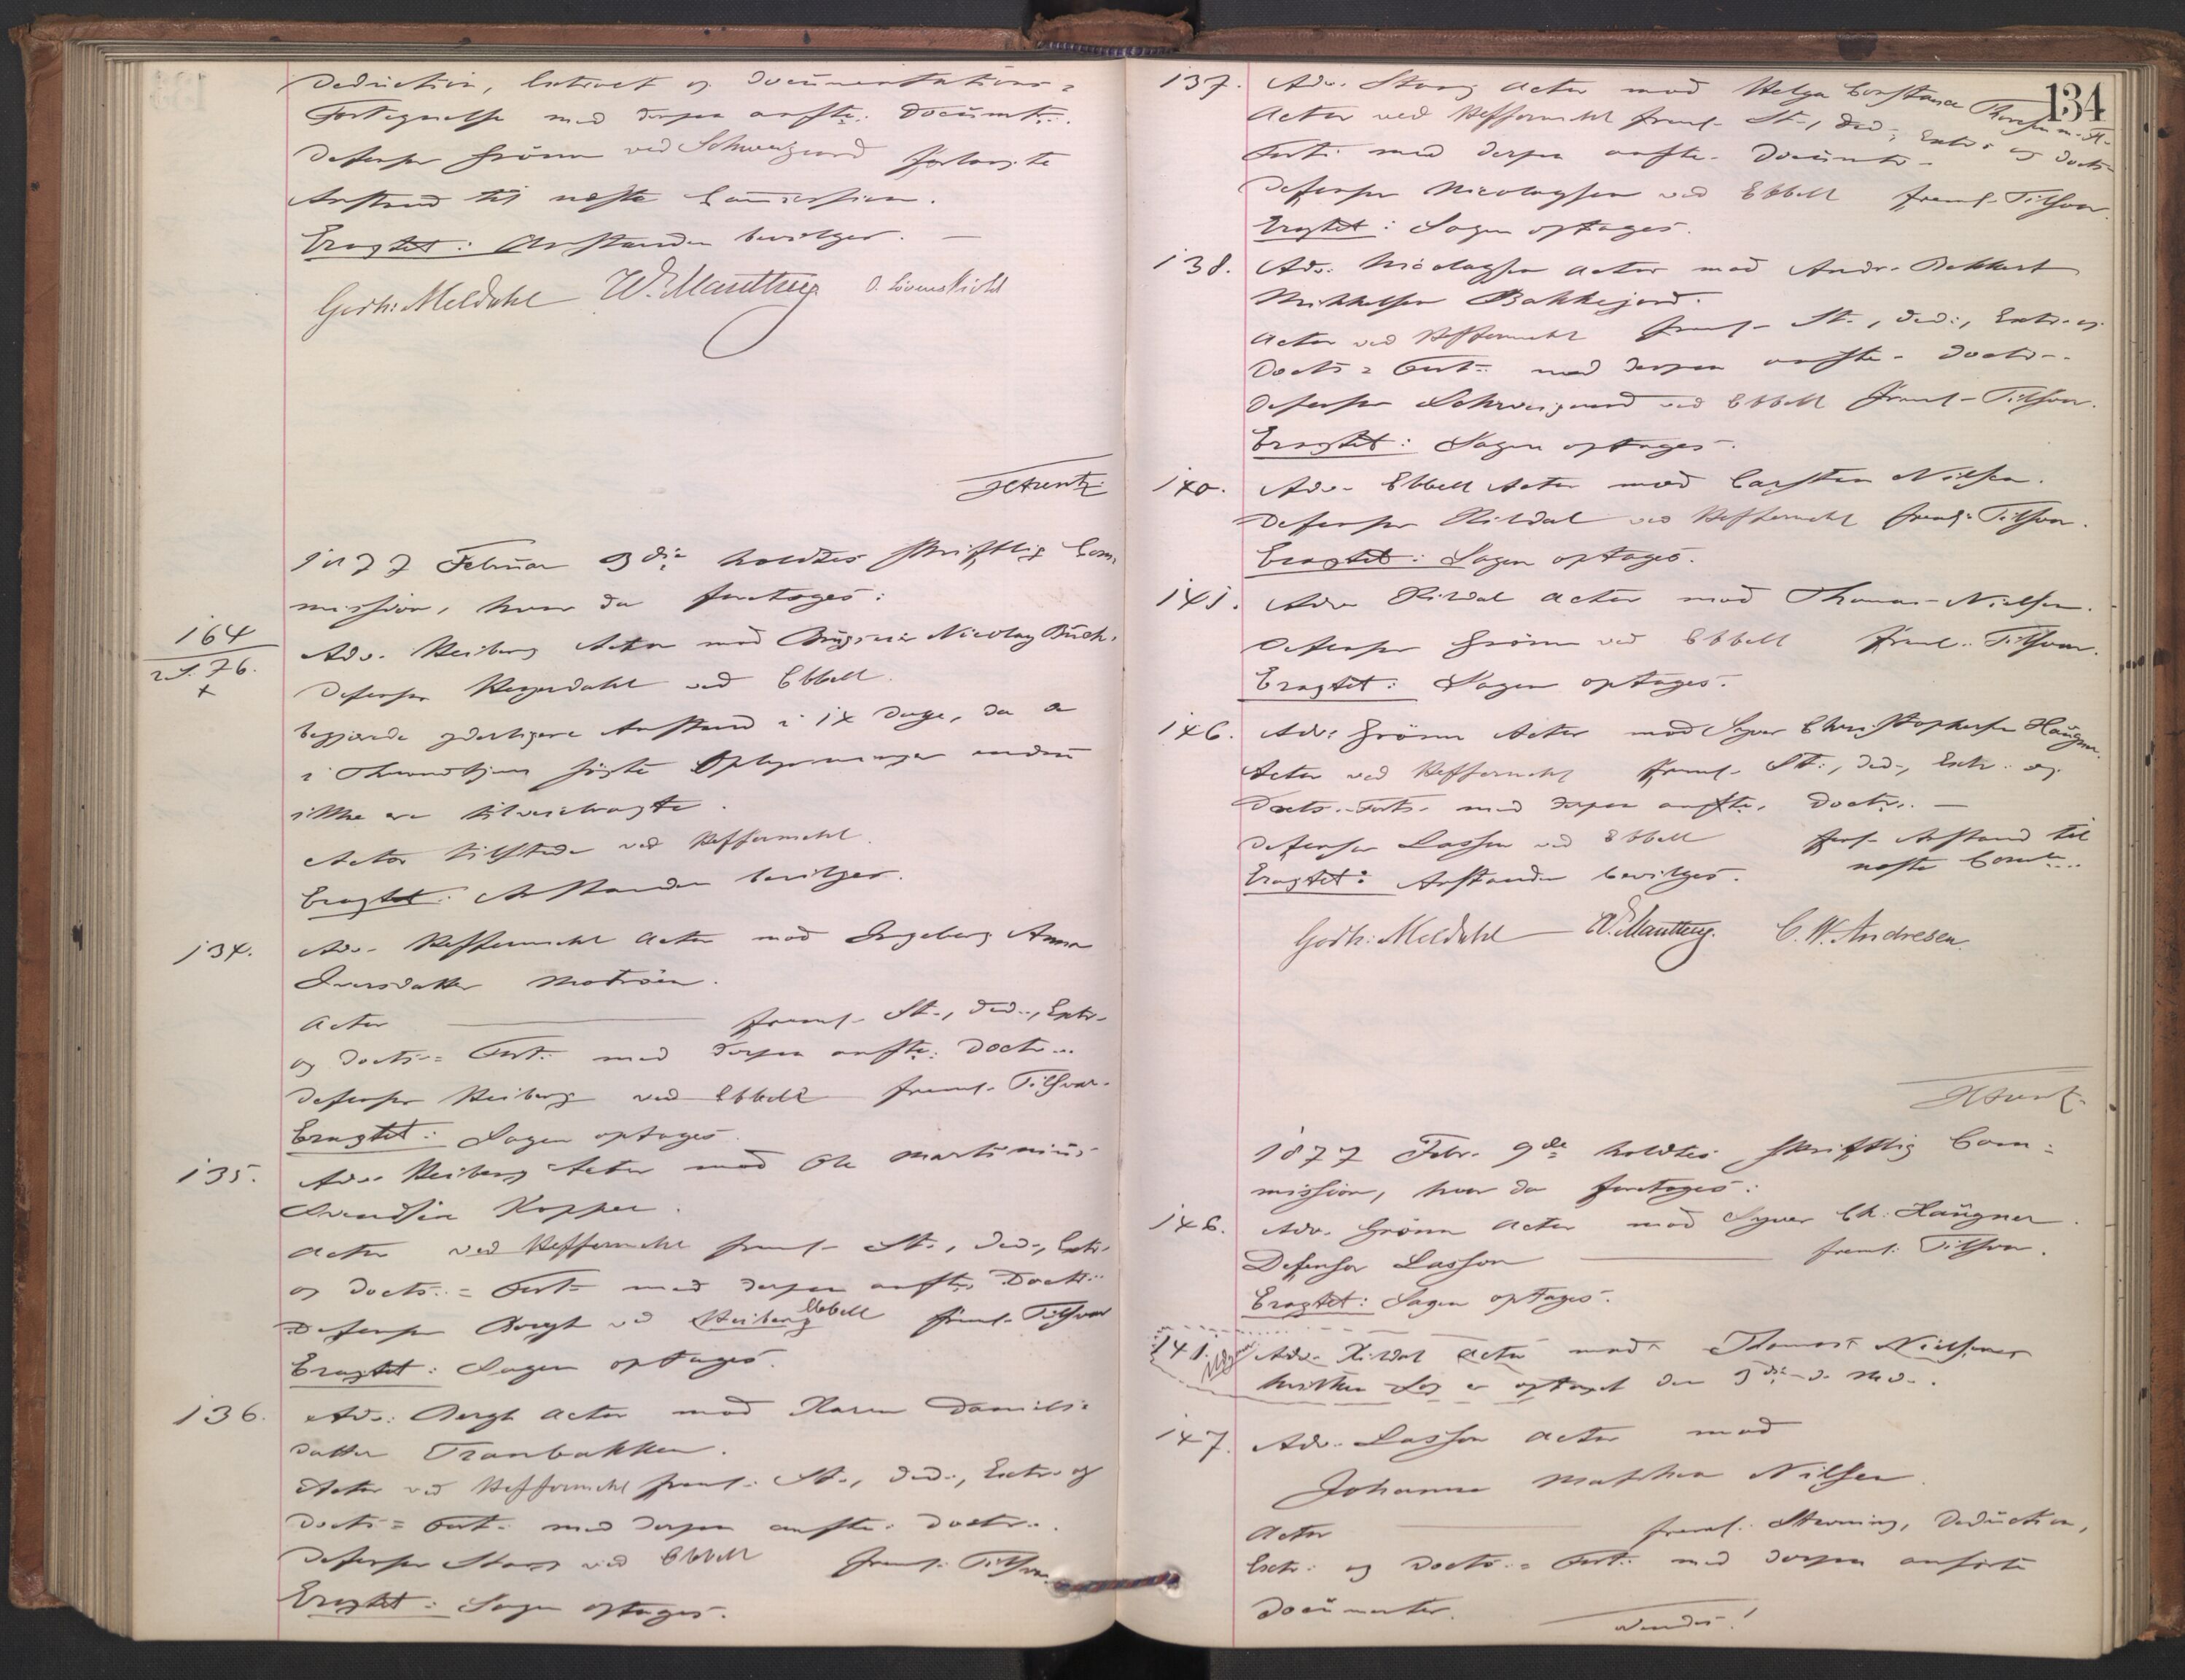 Deduction, Extract og Documentations-
Fortegnelse med derpaa anførte Documter.
Defensor Grönn ved Schweigaard forlangte
Anstand til næste Commission.
Eragtet: Anstanden bevilges. —
Godtf: Meldahl W. E. Manthey O. Løvenskiold
1877 Februar 3die holdtes skriftlig Com-
mission, hvor da foretoges:
164
2 S. 76.
x
Adv. Heiberg Actor mod Nicolay Buch.
Defensor Hagerdahl ved Ebbell
begjærede yderligere Anstand i 14 Dage, da de
i Throndhjem søgte Oplysninger endnu
ikke ere tilveiebragte.
Actor tilstede ved Heffermehl.
Eragtet: Anstanden bevilges.
134. Adv. Heffermehl Actor mod Ingeborg Anna
Iversdatter Motröen.
Actor — freml. St., Ded., Extr.
og Docts.= Fort. med derpaa anfte. Doctr.
Defensor Heiberg ved Ebbell freml. Tilsvar.
Eragtet: Sagen optages.
135. Adv. Heiberg Actor mod Ole Martinius
Svendsen Kopper.
Actor ved Heffermehl freml. St., Ded., Extr.
og Docts.= Fort. med derpaa anfte. Doctr.
Defensor Bergh ved Heiberg Ebbell freml. Tilsvar
Eragtet: Sagen optages.
136. Adv. Bergh Actor mod Karen Daniels-
datter Tranbakken.
Actor ved Heffermehl freml. St., Ded., Extr. og
Docts.= Fort. med derpaa anfte. Doctr.
Defensor Stang ved Ebbell freml. Tilsvar.
Eragtet: Sagen optages.
134
137. Adv. Stang Actor mod Helga Constance
Actor ved Heffermehl freml. St., Ded., Extr. og Docts.
Fort. med derpaa anfte. Documtr.
Defensor Nicolaysen ved Ebbell freml. Tilsvar.
Eragtet: Sagen optages.
138. Adv. Nicolaysen Actor mod Andr.
Mikkelsen Bakkejord.
Actor ved Heffermehl freml. St., Ded., Extr. og
Docts.= Fort. med derpaa anfte. Doctr.
Defensor Schweigaard ved Ebbell freml. Tilsvar.
Eragtet: Sagen optages.
140. Adv. Ebbell Actor mod Carsten Nilsen.
Defensor Kildal ved Heffermehl freml. Tilsvar.
Eragtet: Sagen optages.
141. Adv. Kildal Actor mod Thomas Nielsen.
Defensor Grönn ved Ebbell freml. Tilsvar.
Eragtet: Sagen optages.
146. Adv. Grönn Actor mod Syver Christophersen Haugner.
Actor ved Heffermehl freml. St., Ded., Extr. og
Docts. Fort. med derpaa anfte. Doctr. —
Defensor Lasson ved Ebbell forl. Anstand til
næste Comm.
Eragtet: Anstanden bevilges.
Godtf: Meldahl W. E. Manthey. C. W. Andresen.
1877 Febr. 9de holdtes skriftlig Com-
mission, hvor da foretoges:
146. Adv. Grönn Actor mod Syver Ch. Haugner.
Defensor Lasson — freml. Tilsvar.
Eragtet: Sagen optages.
141. Adv. Kildal Actor mod Thomas Nielsen
hvilken Sag er optaget den 3die d. Md.
147. Adv. Lasson Actor mod
Johanne Mathea Nilsen.
Actor — freml. Stevning, Deduction,
Extr. og Docts.= Fort. med derpaa anførte
Documenter.
Vendes!